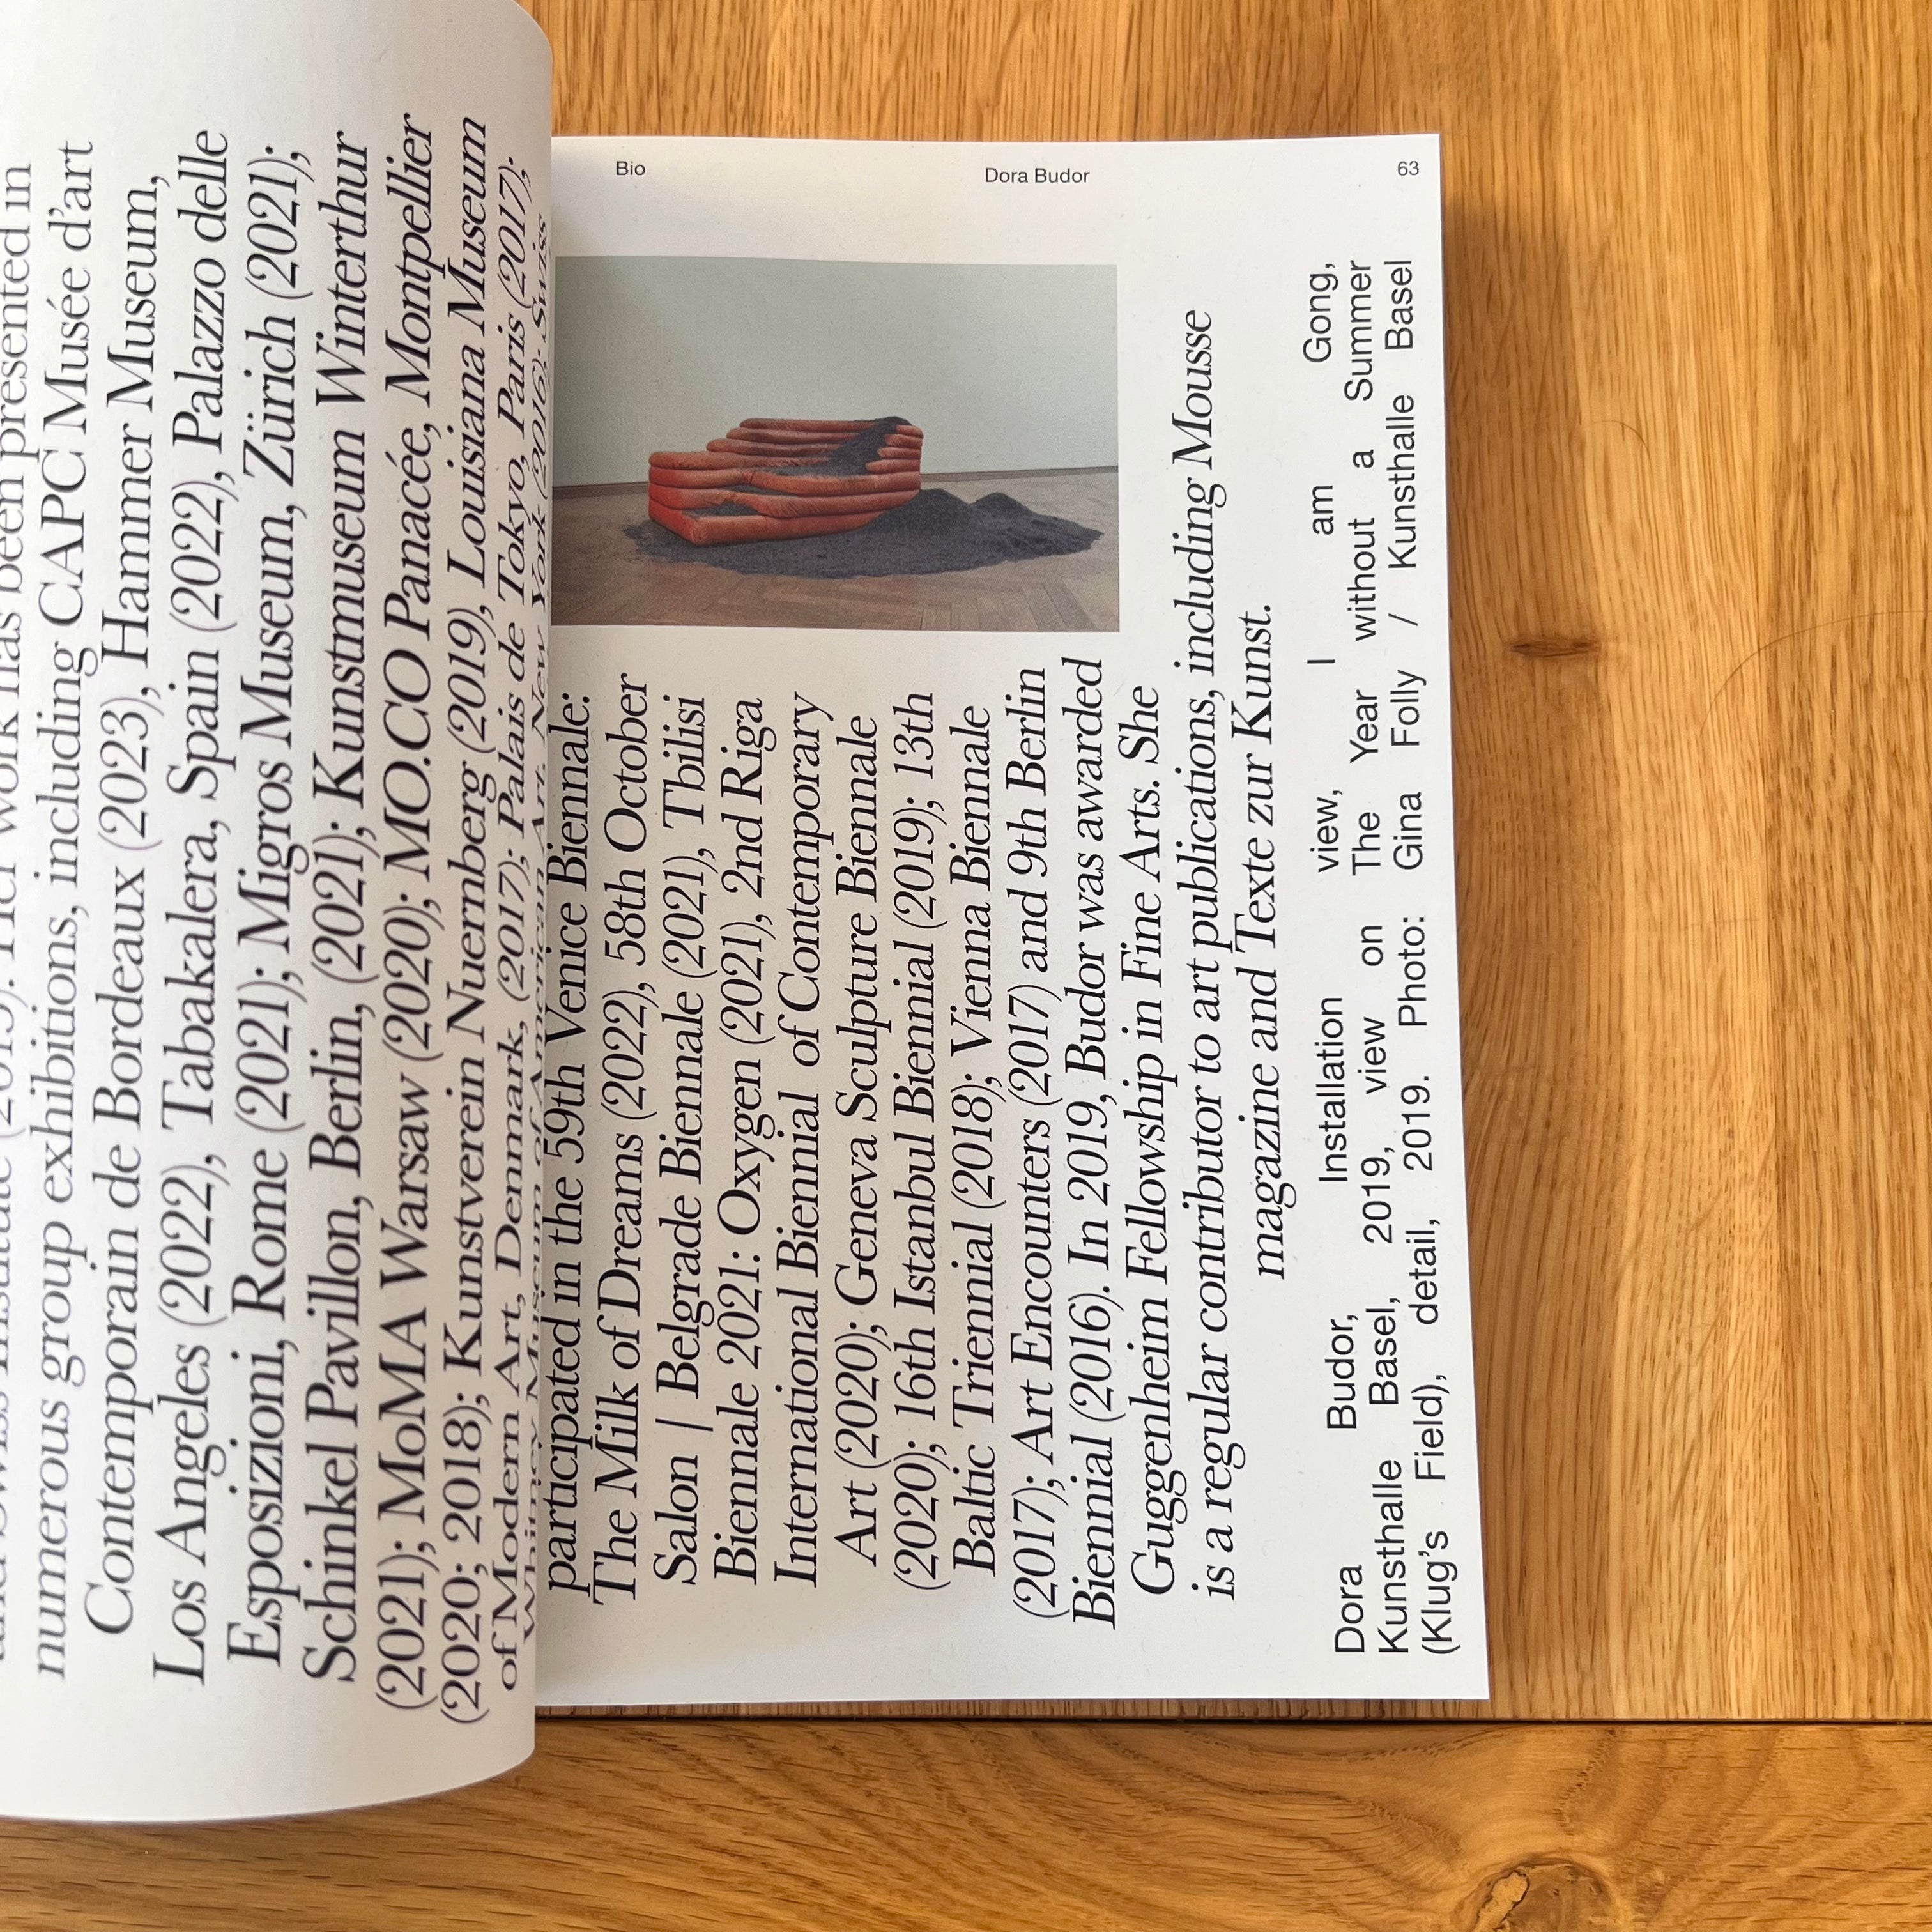 numerous group exhibitions, including CAPC Musée d'art
Contemporain de Bordeaux (2023), Hammer Museum,
Los Angeles (2022), Tabakalera, Spain (2022), Palazzo delle
Esposizioni, Rome (2021); Migros Museum, Zürich (2021);
Schinkel Pavillon, Berlin, (2021); Kunstmuseum Winterthur
(2021); MoMA Warsaw (2020); MO.CO Panacée, Montpellier
(2020; 2018); Kunstverein Nuernberg (2019), Louisiana Museum
of Modern Art, Denmark, (2017); Palais de Tokyo, Paris (2017);
Whitney Museum of American Art, New York (2016); Swiss
Bio
Dora Budor
63
participated in the 59th Venice Biennale:
The Milk of Dreams (2022), 58th October
Salon | Belgrade Biennale (2021), Tbilisi
Biennale 2021: Oxygen (2021), 2nd Riga
International Biennial of Contemporary
Art (2020); Geneva Sculpture Biennale
(2020); 16th Istanbul Biennial (2019); 13th
Baltic Triennial (2018); Vienna Biennale
(2017); Art Encounters (2017) and 9th Berlin
Biennial (2016). In 2019, Budor was awarded
Guggenheim Fellowship in Fine Arts. She
is a regular contributor to art publications, including Mousse
magazine and Texte zur Kunst.
Dora Budor, Installation view, I am Gong,
Kunsthalle Basel, 2019, view on The Year without a Summer
(Klug's Field), detail, 2019. Photo: Gina Folly / Kunsthalle Basel